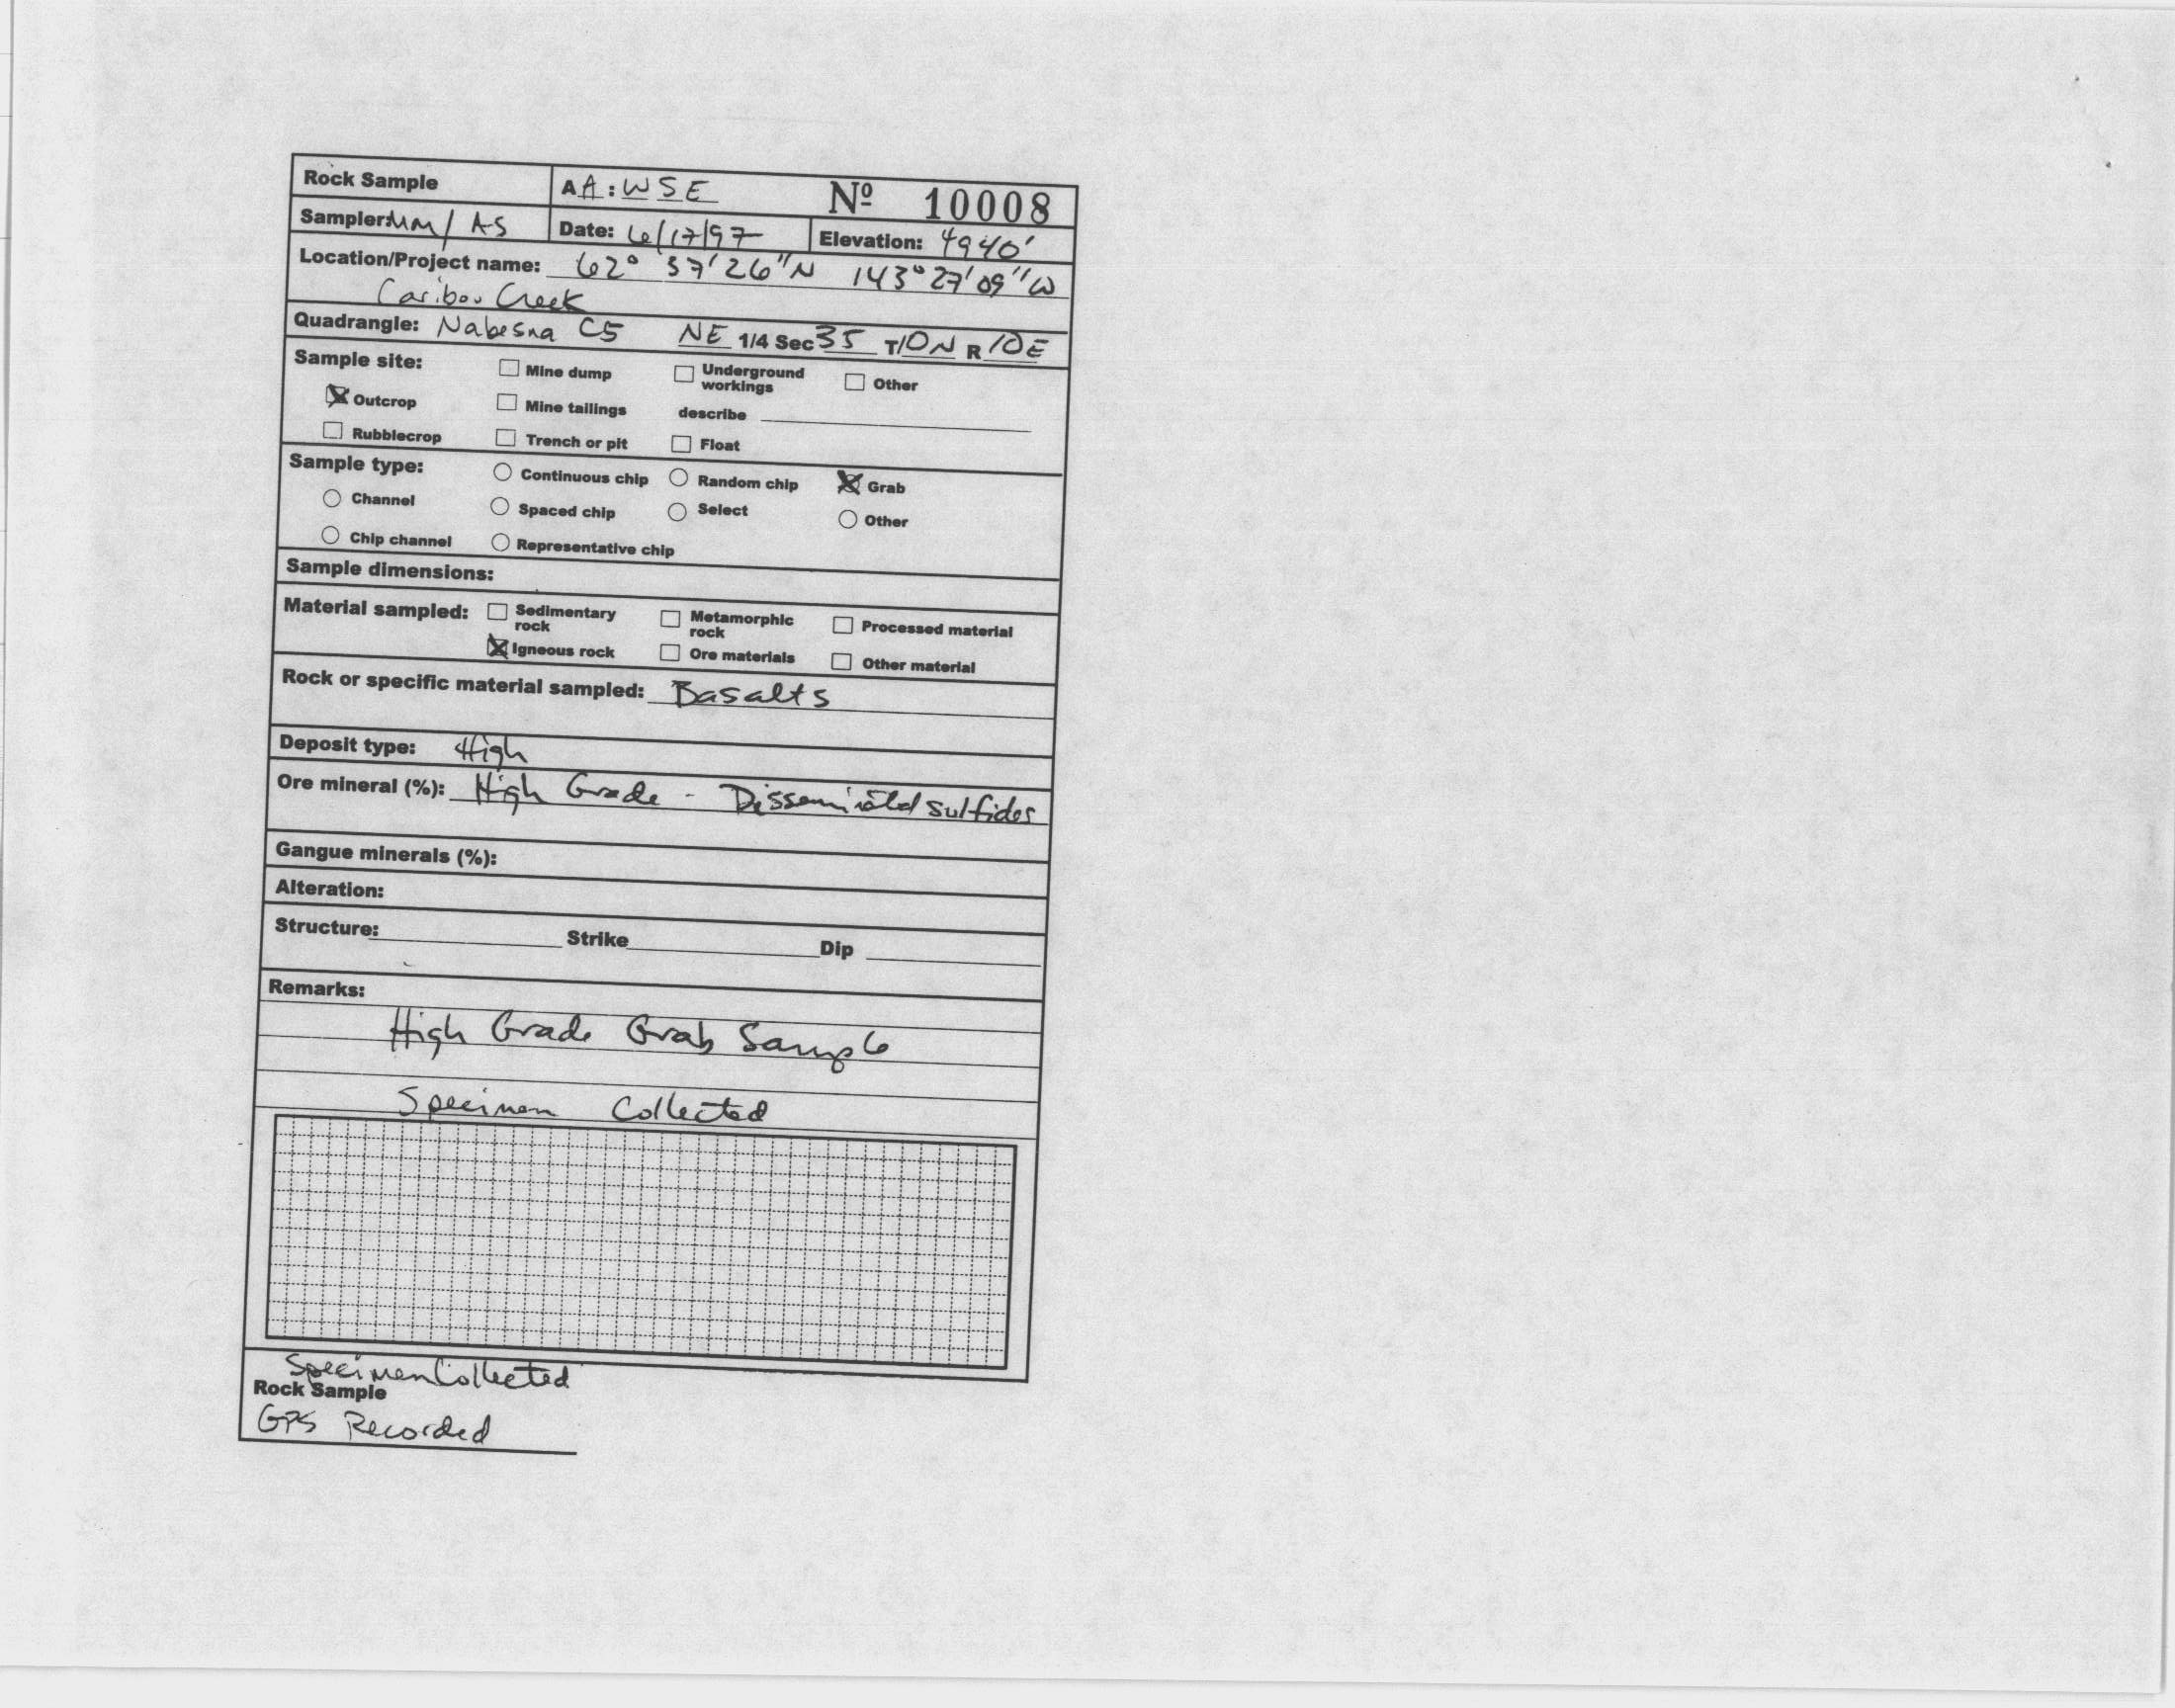 Rock Sample AA:WSE Nº 10008
Sampler: MM/AS Date: 6/17/97 Elevation: 4940'
Location/Project name: 62° 37'26"N 143°27'09"W
Caribou Creek
Quadrangle: Nabesna C5 NE 1/4 Sec 35 T10N R10E
Sample site: Mine dump Underground workings Other
Outcrop Mine tailings describe
Rubblecrop Trench or pit Float
Sample type: Continuous chip Random chip Grab
Channel Spaced chip Select Other
Chip channel Representative chip
Sample dimensions:
Material sampled: Sedimentary rock Metamorphic rock Processed material
Igneous rock Ore materials Other material
Rock or specific material sampled: Basalts
Deposit type: High
Ore mineral (%): High Grade - Disseminated sulfides
Gangue minerals (%):
Alteration:
Structure: Strike Dip
Remarks:
High Grade Grab Sample
Specimen Collected
Specimen Collected
Rock Sample
GPS Recorded